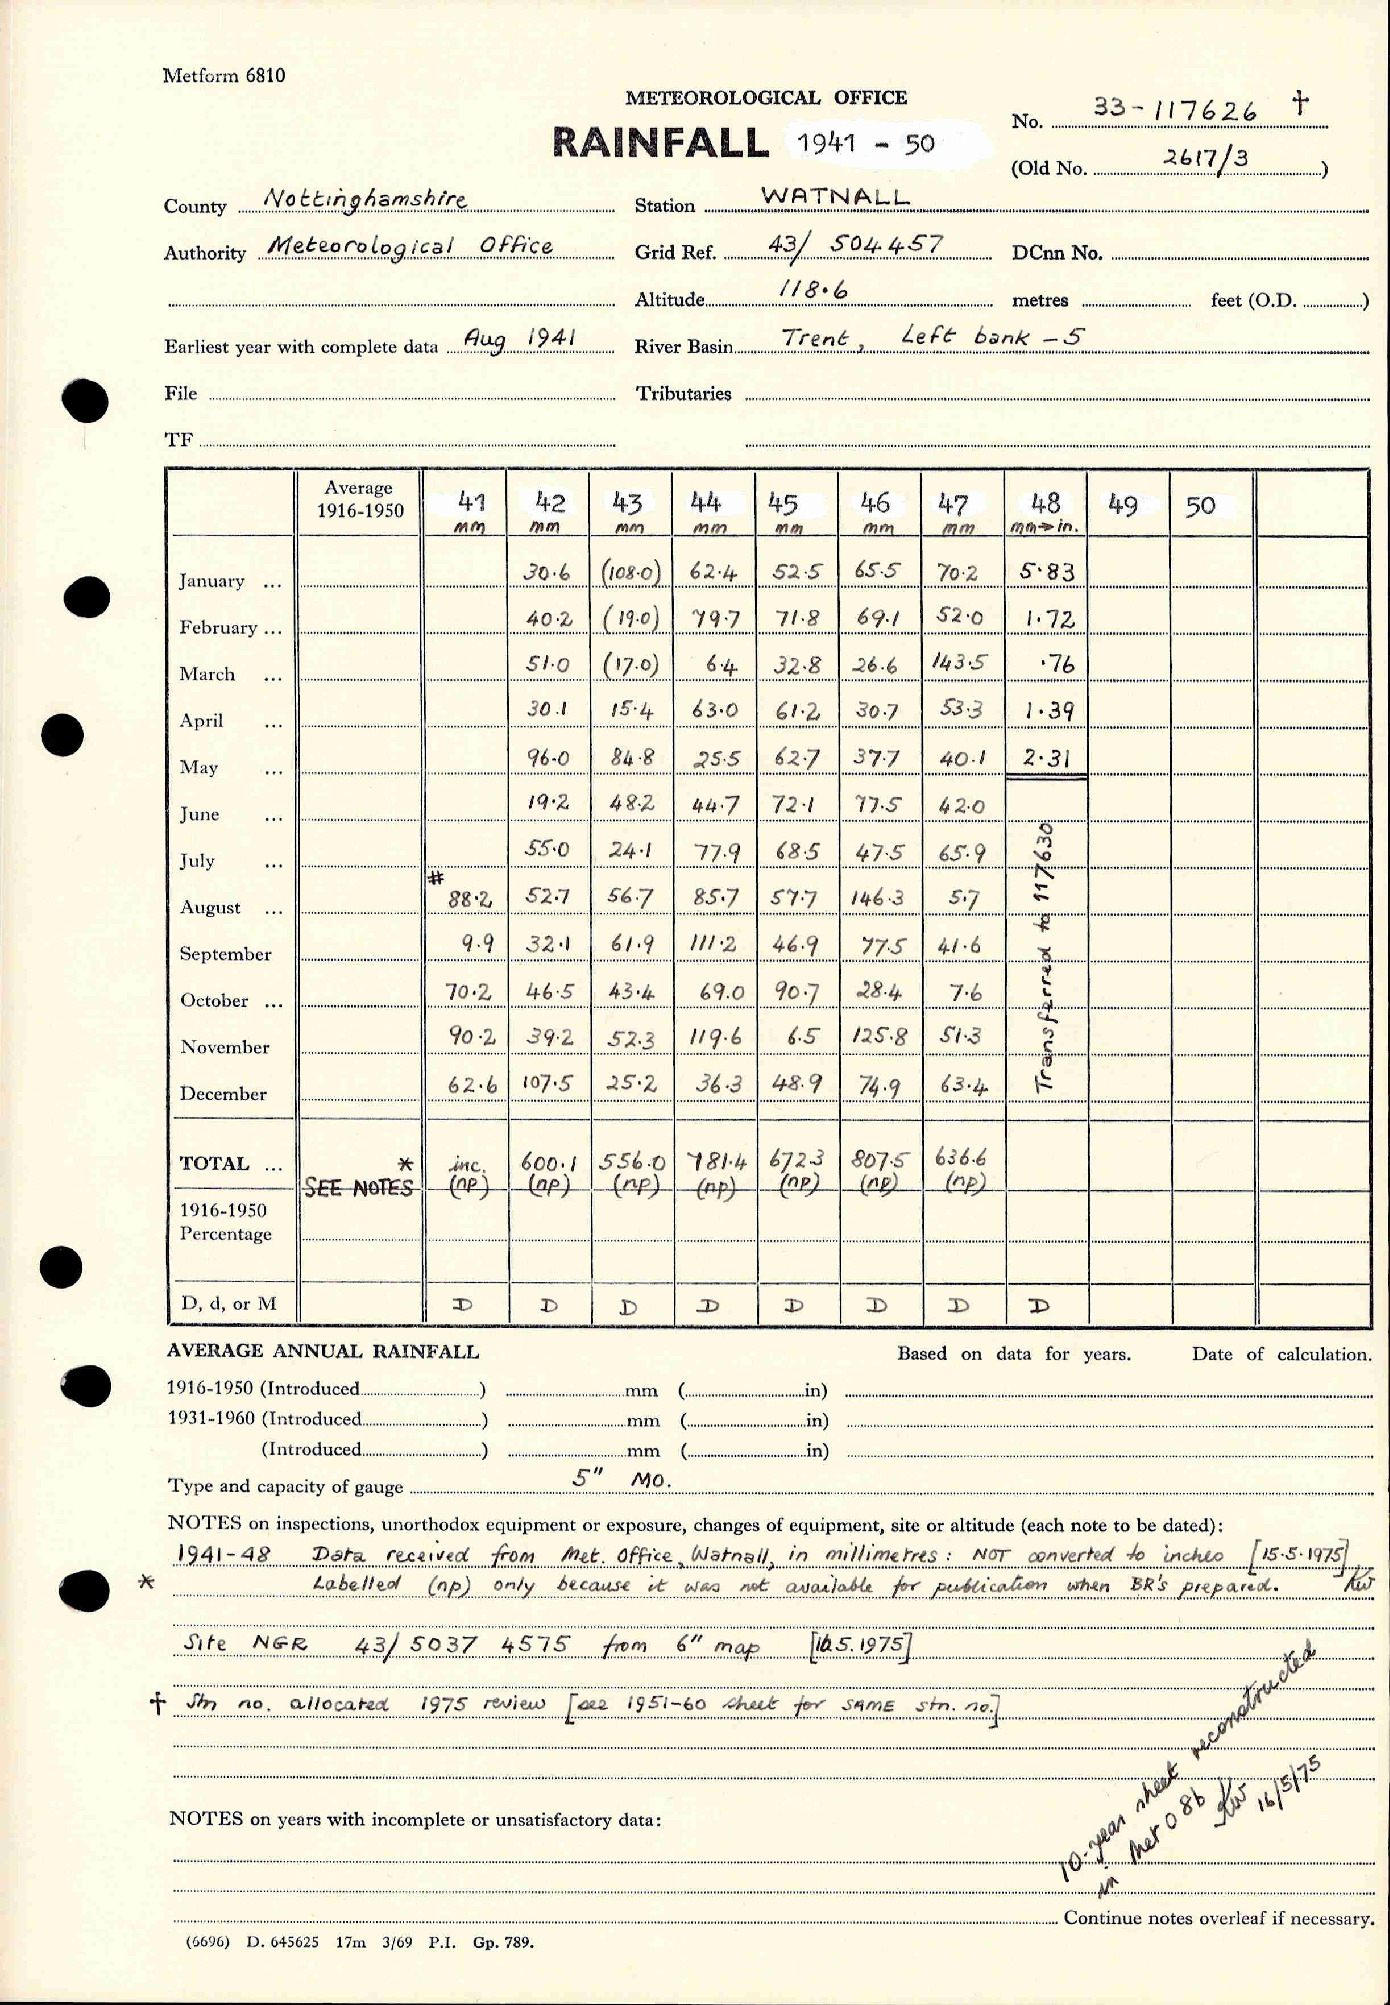 Metform 6810
METEOROLOGICAL OFFICE
RAINFALL 1941 - 50
No. 33-117626 †
(Old No. 2617/3 )
County Nottinghamshire Station WATNALL
Authority Meteorological Office Grid Ref. 43/ 504457 DCnn No.
Altitude 118.6 metres feet (O.D. )
Earliest year with complete data Aug 1941 River Basin Trent, Left bank -5
File Tributaries
TF
Average 1916-1950 41 42 43 44 45 46 47 48 49 50
mm mm mm mm mm mm mm mm→in.
January ... 30.6 (108.0) 62.4 52.5 65.5 70.2 5.83
February ... 40.2 (19.0) 79.7 71.8 69.1 52.0 1.72
March ... 51.0 (17.0) 6.4 32.8 26.6 143.5 .76
April ... 30.1 15.4 63.0 61.2 30.7 53.3 1.39
May ... 96.0 84.8 25.5 62.7 37.7 40.1 2.31
June ... 19.2 48.2 44.7 72.1 77.5 42.0
July ... 55.0 24.1 77.9 68.5 47.5 65.9
August ... # 88.2 52.7 56.7 85.7 57.7 146.3 5.7
September 9.9 32.1 61.9 111.2 46.9 77.5 41.6
October ... 70.2 46.5 43.4 69.0 90.7 28.4 7.6
November 90.2 39.2 52.3 119.6 6.5 125.8 51.3
December 62.6 107.5 25.2 36.3 48.9 74.9 63.4
Transferred to 117630
TOTAL ... * inc. 600.1 556.0 781.4 672.3 807.5 636.6
SEE NOTES (np) (np) (np) (np) (np) (np) (np)
1916-1950
Percentage
D, d, or M D D D D D D D D
AVERAGE ANNUAL RAINFALL Based on data for years. Date of calculation.
1916-1950 (Introduced ) mm ( in)
1931-1960 (Introduced ) mm ( in)
(Introduced ) mm ( in)
Type and capacity of gauge 5" MO.
NOTES on inspections, unorthodox equipment or exposure, changes of equipment, site or altitude (each note to be dated):
1941-48 Data received from Met. Office, Watnall, in millimetres: NOT converted to inches [15.5.1975]
* Labelled (np) only because it was not available for publication when BR's prepared. KW
Site NGR 43/ 5037 4575 from 6" map [16.5.1975]
† Stn no. allocated 1975 review [see 1951-60 sheet for SAME stn. no.]
10-year sheet reconstructed
in Met O 8b KW 16/5/75
NOTES on years with incomplete or unsatisfactory data:
Continue notes overleaf if necessary.
(6696) D. 645625 17m 3/69 P.I. Gp. 789.